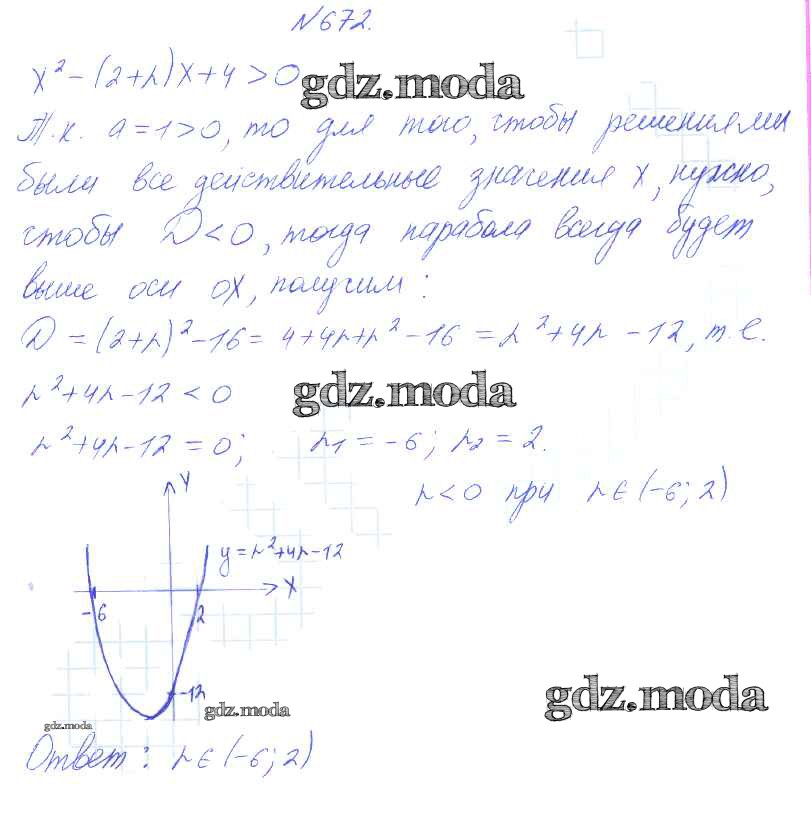 №672.
x² – (2+r)x+4 > 0
gdz.moda
Т.к. a=1>0, то для того, чтобы решениями
были все действительные значения x, нужно,
чтобы D<0, тогда парабола всегда будет
выше оси OX, получим:
D = (2+r)² – 16 = 4+4r+r² – 16 = r² + 4r – 12, т.е.
r² + 4r – 12 < 0
gdz.moda
r² + 4r – 12 = 0; r₁ = – 6; r₂ = 2.
r < 0 при r ∈ (–6; 2)
Y
y = r² + 4r – 12
X
–6
2
–12
gdz.moda
gdz.moda
gdz.moda
Ответ: r ∈ (–6; 2)